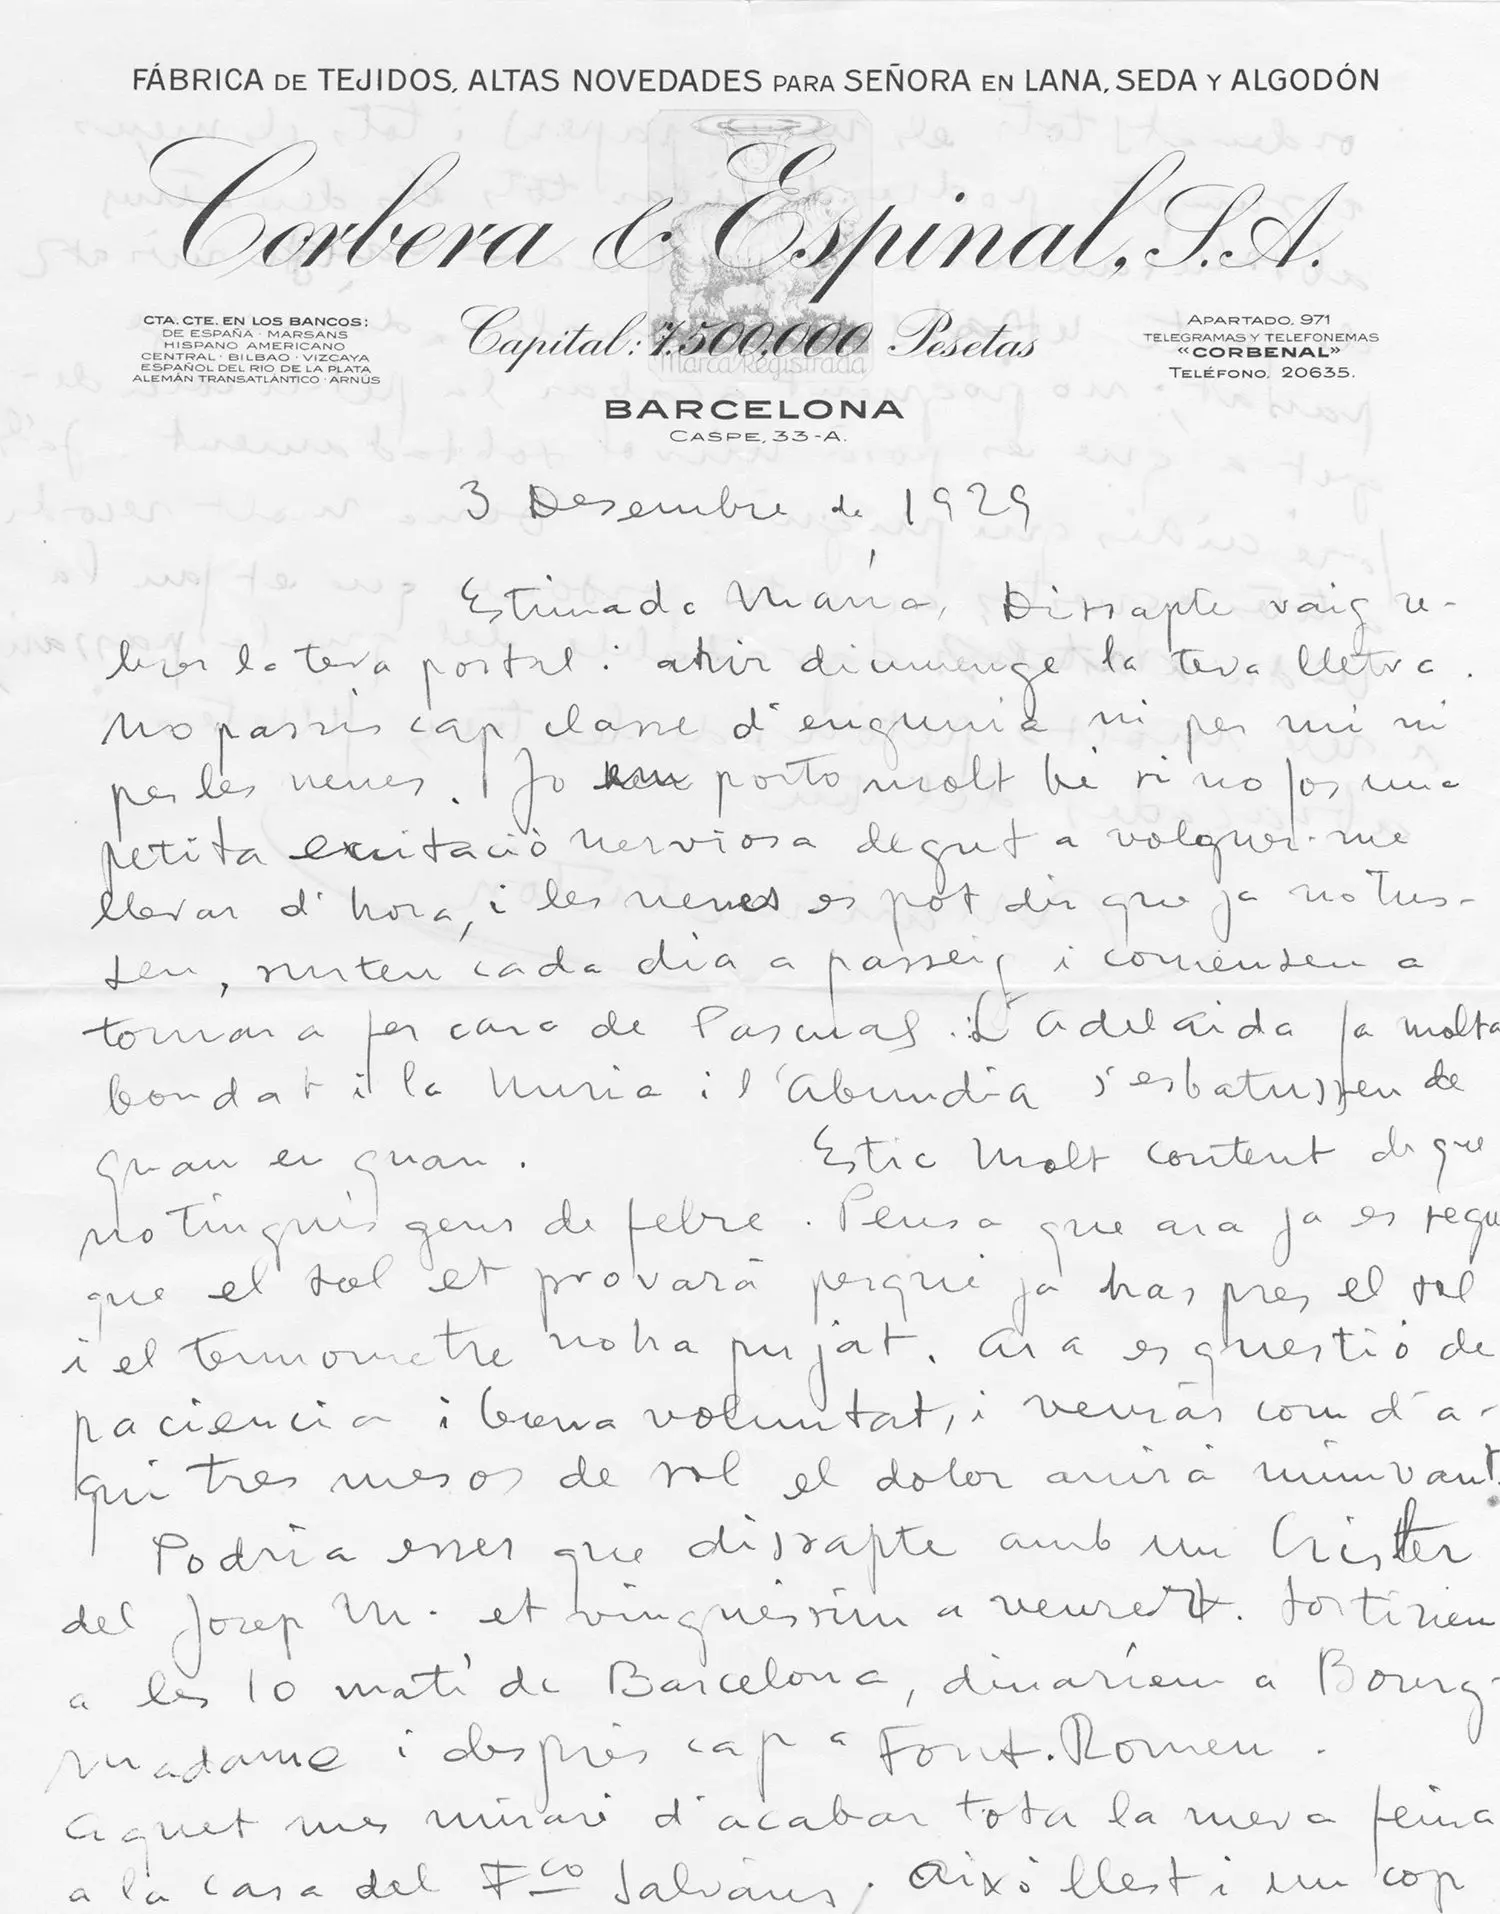 FÁBRICA DE TEJIDOS, ALTAS NOVEDADES PARA SEÑORA EN LANA, SEDA Y ALGODÓN
Corbera & Espinal, S.A.
CTA. CTE. EN LOS BANCOS:
DE ESPAÑA · MARSANS
HISPANO AMERICANO
CENTRAL · BILBAO · VIZCAYA
ESPAÑOL DEL RIO DE LA PLATA
ALEMÁN TRANSATLÁNTICO · ARNÚS
Capital: 7.500,000 Pesetas
Marca Registrada
APARTADO, 971
TELEGRAMAS Y TELEFONEMAS
"CORBENAL"
TELÉFONO, 20635.
BARCELONA
CASPE, 33-A.
3 Desembre de 1929
Estimada María, Dissapte vaig re-
brer la teva postal i ahir diumenge la teva lletra.
No passis cap classe d'engunia ni per mi ni
per les nenes. Jo em porto molt bé si no fos una
petita exitació nerviosa degut a volguer-me
llevar d'hora, i les nenes es pot dir que ja no tus-
sen, surten cada dia a passeig i comensen a
tornar a fer cara de Pascuas. L'Adelaida fa molta
bondat i la Nuria i l'Abundia s'esbatussen de
quan en quan. Estic molt content de que
no tinguis gens de febre. Pensa que ara ja es segu
que el sol et provará perqué ja has pres el sol
i el termometre no ha pujat. Ara es questió de
paciencia i bona voluntat, i veurás com d'a-
qui tres mesos de sol el dolor anirá minvant.
Podria esser que dissapte amb un Crister
del Josep M. et vinguéssim a veuret. Sortiriem
a les 10 matí de Barcelona, dinaríem a Bourg-
madame i després cap a Font-Romeu.
Aquet mes miraré d'acabar tota la meva feina
a la casa del Fco Salváns. Aixó llest i un cop